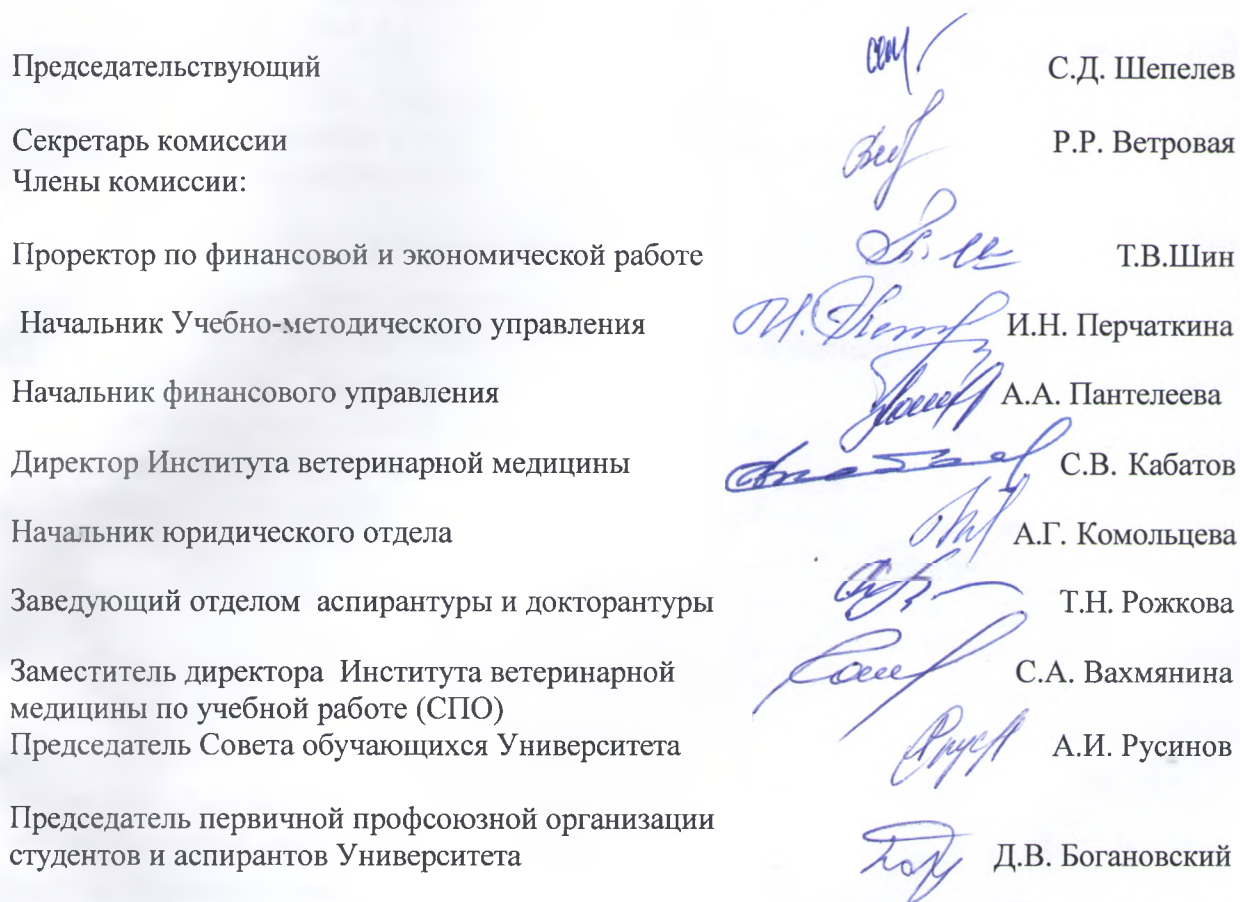 Председательствующий С.Д. Шепелев
Секретарь комиссии Р.Р. Ветровая
Члены комиссии:
Проректор по финансовой и экономической работе Т.В.Шин
Начальник Учебно-методического управления И.Н. Перчаткина
Начальник финансового управления А.А. Пантелеева
Директор Института ветеринарной медицины С.В. Кабатов
Начальник юридического отдела А.Г. Комольцева
Заведующий отделом аспирантуры и докторантуры Т.Н. Рожкова
Заместитель директора Института ветеринарной С.А. Вахмянина
медицины по учебной работе (СПО)
Председатель Совета обучающихся Университета А.И. Русинов
Председатель первичной профсоюзной организации
студентов и аспирантов Университета Д.В. Богановский